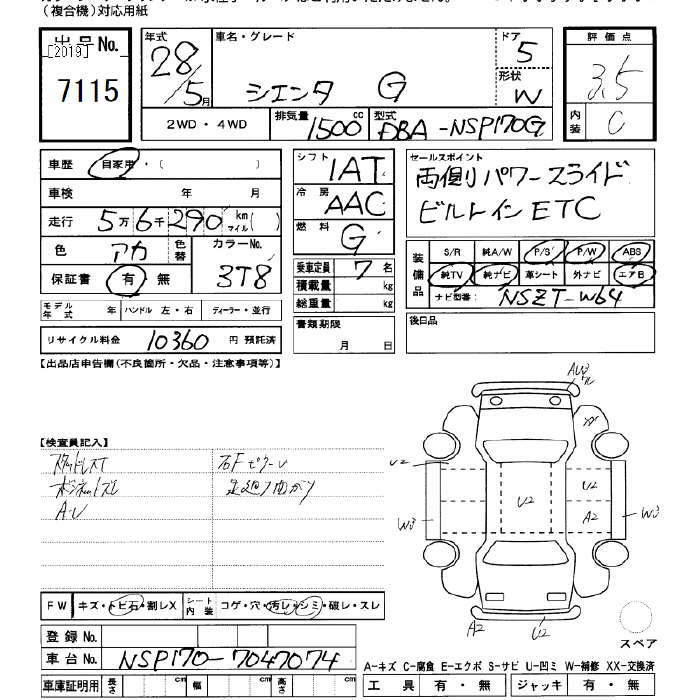 (複合機)対応用紙
出品No.
[2019]
7115
年式 28/5月
車名・グレード シエンタ G
ドア 5
形状 W
2WD・4WD
排気量 1500 cc
型式 DBA-NSP170G
評価点 3.5
内装 C
車歴 自家用・( )
車検 年 月
走行 5万6千290 km マイル( )
色 アカ 色替
カラーNo. 3T8
保証書 有・無
モデル年式 年 ハンドル 左・右 ディーラー・並行
リサイクル料金 10360 円 預託済
シフト 1AT
冷房 AAC
燃料 G
乗車定員 7 名
積載量 kg
総重量 kg
書類期限
月 日
セールスポイント
両側パワースライド
ビルトインETC
装備品 S/R 純A/W P/S P/W ABS
純TV 純ナビ 革シート 外ナビ エアB
ナビ型番: NSZT-W64
後日品
【出品店申告欄(不良箇所・欠品・注意事項等)】
【検査員記入】
スタッドレスT
ボンネットズレ
A・U
右FピラーU
足廻り曲がり
AU3
A1
U2
U2
U2
A2
W3
W3
A2
U2
スペア
FW キズ・トビ石・割レX
シート内装 コゲ・穴・汚レ・シミ・破レ・スレ
登録No.
車台No. NSP170-7047074
車庫証明用 長さ cm 幅 cm 高さ cm
A-キズ C-腐食 E-エクボ S-サビ U-凹ミ W-補修 XX-交換済
工具 有・無 ジャッキ 有・無